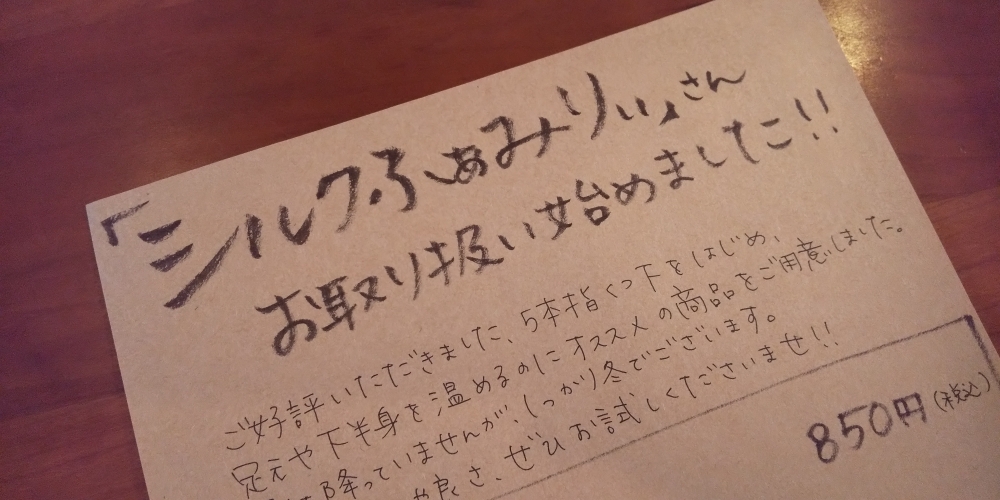 「シルクふぁみりぃ」さん
お取り扱い始めました!!
ご好評いただきました、5本指くつ下をはじめ、
足元や下半身を温めるのにオススメの商品をご用意しました。
降っていませんが、しっかり冬でございます。
良さ、ぜひお試しくださいませ!!
850円(税込)